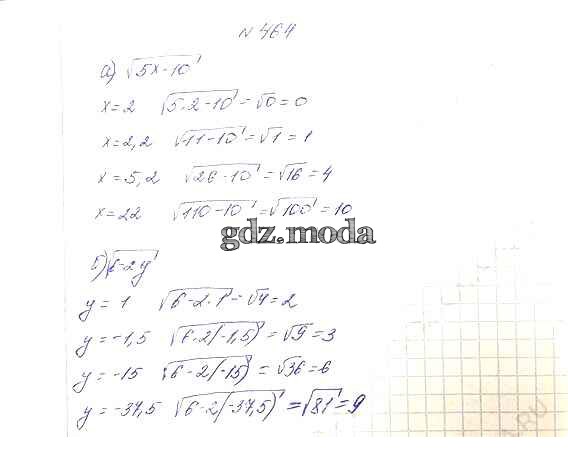 N 464
а) √5x-10
x=2 √5·2-10 = √0 = 0
x=2,2 √11-10 = √1 = 1
x=5,2 √26-10 = √16 = 4
x=22 √110-10 = √100 = 10
gdz.moda
б) √6-2y
y = 1 √6-2·1 = √4 = 2
y = -1,5 √6-2(-1,5) = √9 = 3
y = -15 √6-2(-15) = √36 = 6
y = -37,5 √6-2(-37,5) = √81 = 9